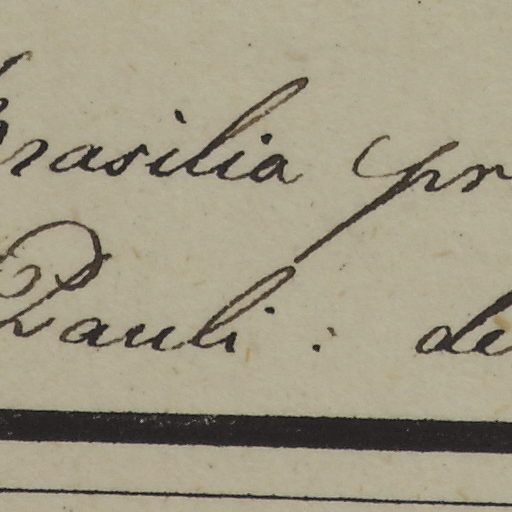 brasilia pr
Pauli: de